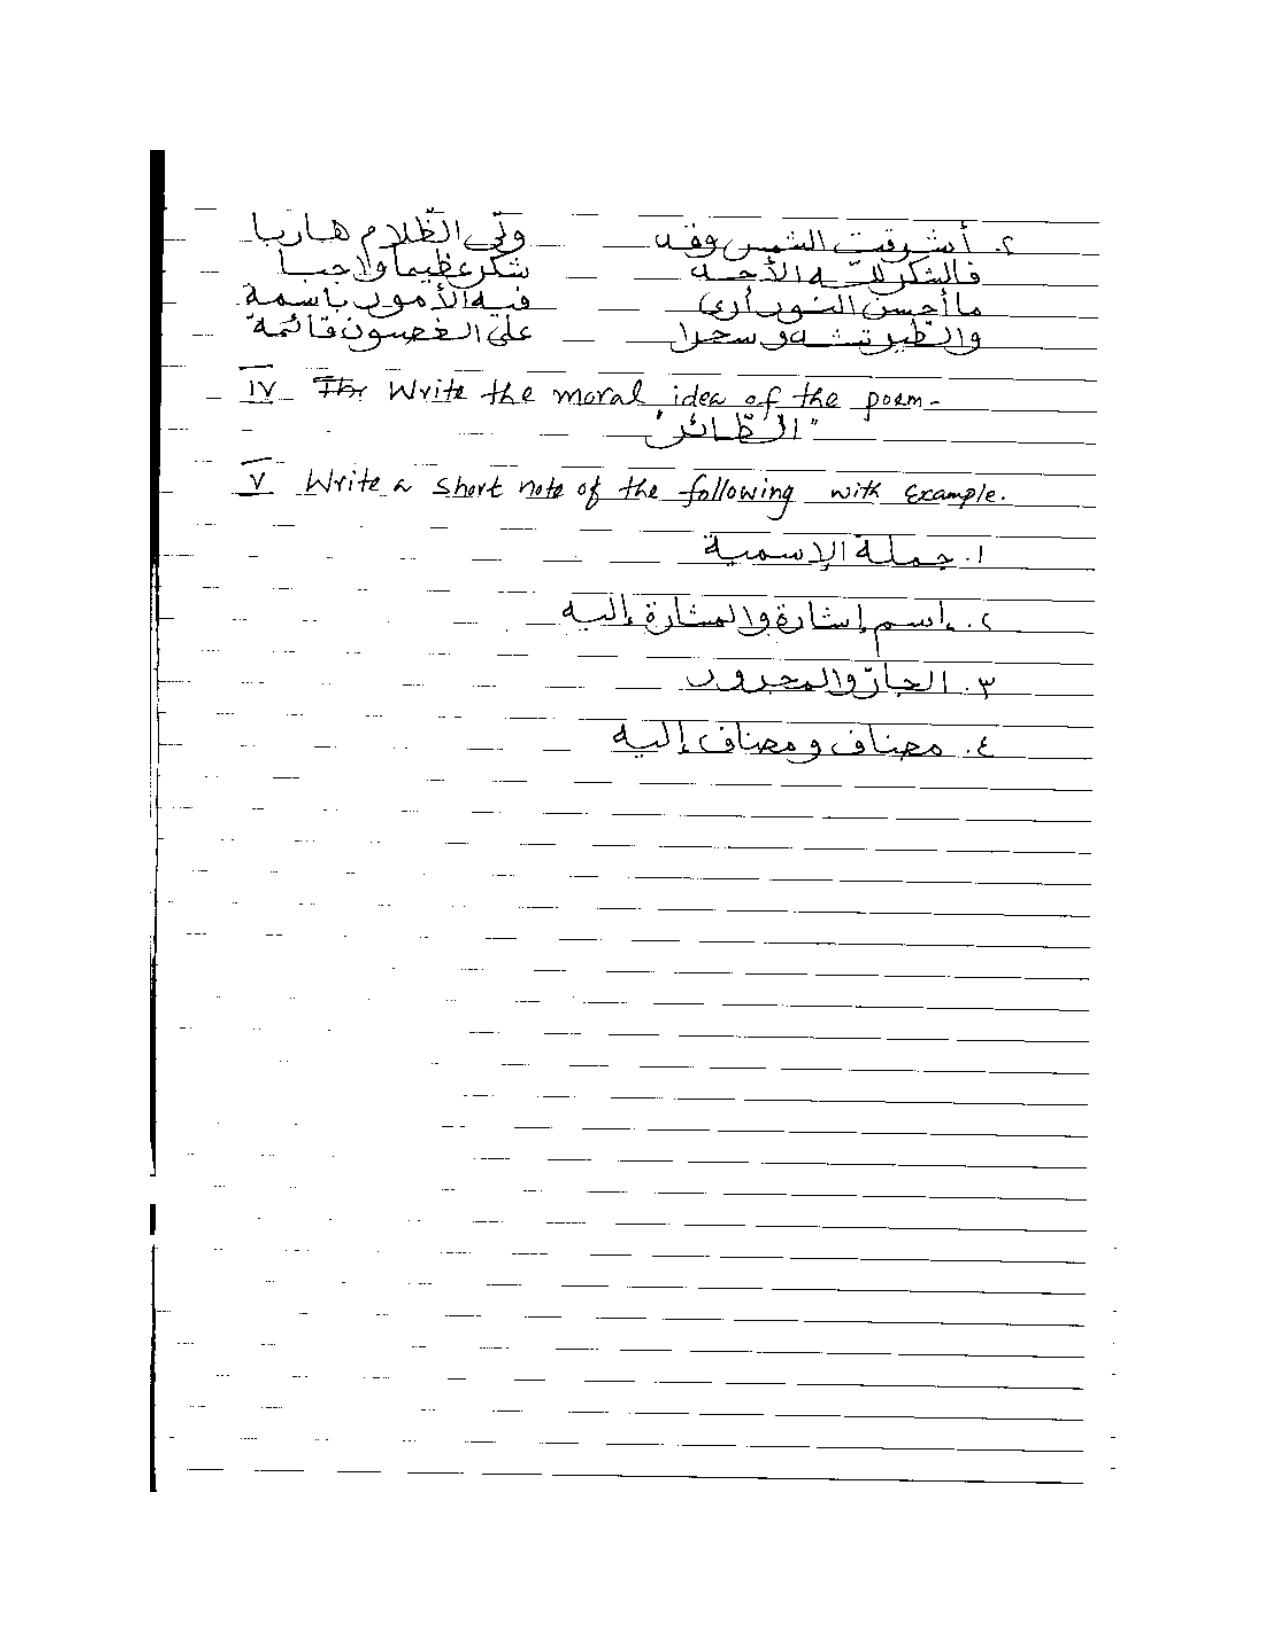 ٢. أشرقت الشمس وقد ولّى الظّلام هاربا
فالشكر للّه الأحد شكر عظيما واجبا
ما أحسن النور أرى فيه الأمور باسمة
والطّير تشدو سحرا على الغصون قائمة
IV Write the moral idea of the poem-
"الطّائر"
V Write a short note of the following with Example.
١. جملة الإسمية
٢. إسم إشارة والمشارة إليه
٣. الجارّ والمجرور
٤. مضاف ومضاف إليه